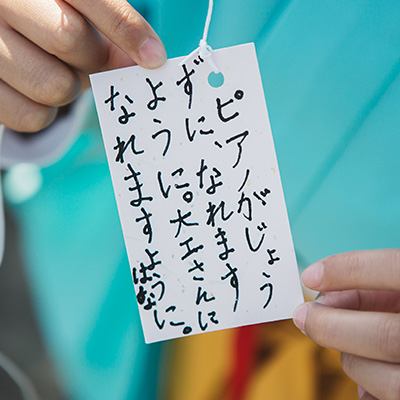 ピアノがじょう
ずに、なれます
ように。大工さんに
なれますように。
はな